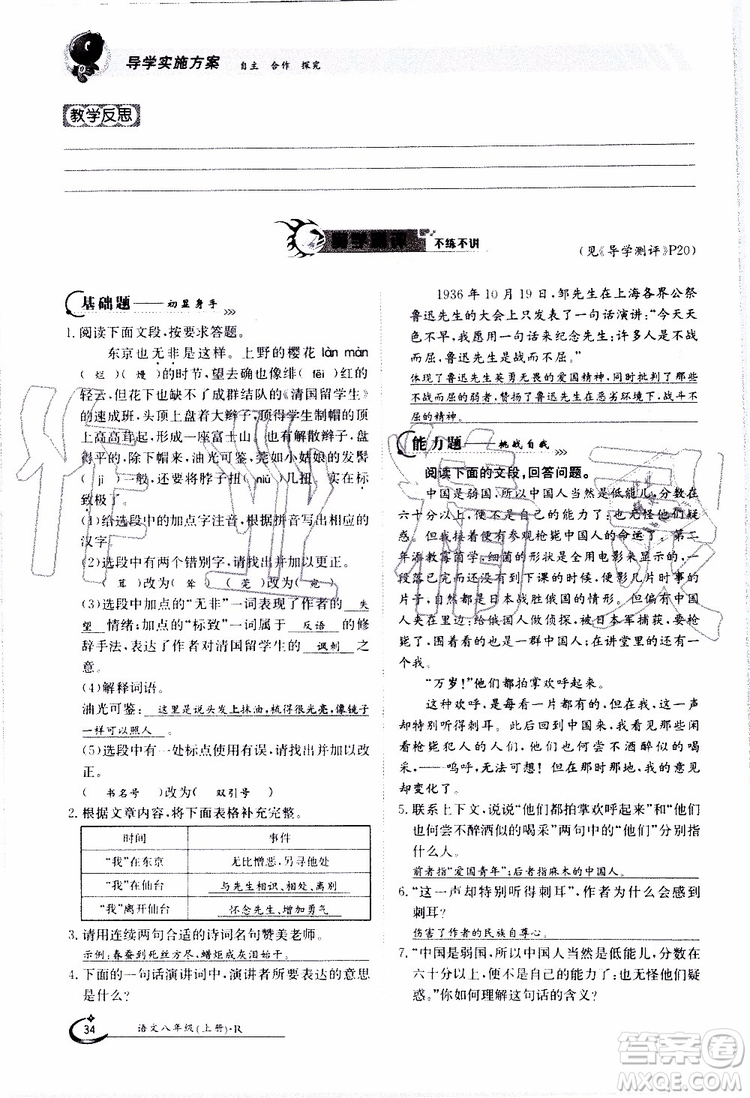 导学实施方案 自主 合作 探究
教学反思
导学测评 不练不讲
(见《导学测评》P20)
基础题——初显身手
1.阅读下面文段,按要求答题。
东京也无非是这样。上野的樱花 làn màn
( 烂 )( 熳 )的时节,望去确也像绯( fēi )红的
轻云,但花下也缺不了成群结队的《清国留学生》
的速成班,头顶上盘着大辫子,顶得学生制帽的顶
上高高茸起,形成一座富士山。也有解散辫子,盘
得平的,除下帽来,油光可鉴,莞如小姑娘的发髻
( jì )一般,还要将脖子扭( niǔ )几扭。实在标
致极了。
(1)给选段中的加点字注音,并根据拼音写出
汉字。
(2)选段中有两个错别字,请找出来并改正。
( 茸 )改为( 耸 ) ( 莞 )改为( 宛 )
(3)选段中加点的“无非”一词表现了作者的 失
望 情绪;加点的“标致”一词属于 反语 的修
辞手法,表达了作者对清国留学生的 讽刺 之
意。
(4)解释词语。
油光可鉴: 这里是说头发上抹油,梳得很光亮,像镜子
一样可以照人 。
(5)选段中有一处标点使用有误,请找出并改
正。
( 书名号 )改为( 双引号 )
2.根据文章内容,将下面表格补充完整。
时间 事件
“我”在东京 无比憎恶,另寻他处
“我”在仙台 与先生相识、相处、离别
“我”离开仙台 怀念先生、增加勇气
3.请用连续两句合适的诗词名句赞美老师。
示例:春蚕到死丝方尽,蜡炬成灰泪始干。
4.下面的一句话演讲词中,演讲者所要表达的意思
是什么?
1936年10月19日,邹先生在上海各界公祭
鲁迅先生的大会上只发表了一句话演讲:“今天天
色不早,我愿用一句话来纪念先生:许多人是不战
而屈,鲁迅先生是战而不屈。”
体现了鲁迅先生英勇无畏的爱国精神,同时批判了不战
而屈的弱者,赞扬了鲁迅先生在恶劣环境下,战斗不
屈的精神。
能力题——挑战自我
阅读下面的文段,回答问题。
中国是弱国,所以中国人当然是低能儿,分数在
六十分以上,便不是自己的能力了:也无怪他们疑
惑。但我接着便有参观枪毙中国人的命运了。第二
年添教霉菌学,细菌的形状是全用电影来显示的,一
段落已完而还没有到下课的时候,便影几片时事的
片子,自然都是日本战胜俄国的情形。但偏有中国
人夹在里边:给俄国人做侦探,被日本军捕获,要枪
毙了,围着看的也是一群中国人;在讲堂里的还有一
个我。
“万岁!”他们都拍掌欢呼起来。
这种欢呼,是每看一片都有的,但在我,这一声却
特别听得刺耳。此后回到中国来,我看见那些闲
看枪毙犯人的人们,他们也何尝不酒醉似的喝
采,——呜呼,无法可想!但在那时那地,我的意见
却变化了。
5.联系上下文,说说“他们都拍掌欢呼起来”和“他们
也何尝不醉酒似的喝采”两句中的“他们”分别指
什么人。
前者指“爱国青年”;后者指麻木的中国人。
6.“这一声却特别听得刺耳”,作者为什么会感到
刺耳?
伤害了作者的民族自尊心。
7.“中国是弱国,所以中国人当然是低能儿,分数在
六十分以上,便不是自己的能力了:也无怪他们疑
惑。”你如何理解这句话的含义?
34 语文八年级(上册)·R
作业精灵
答案圈
MXQE.COM